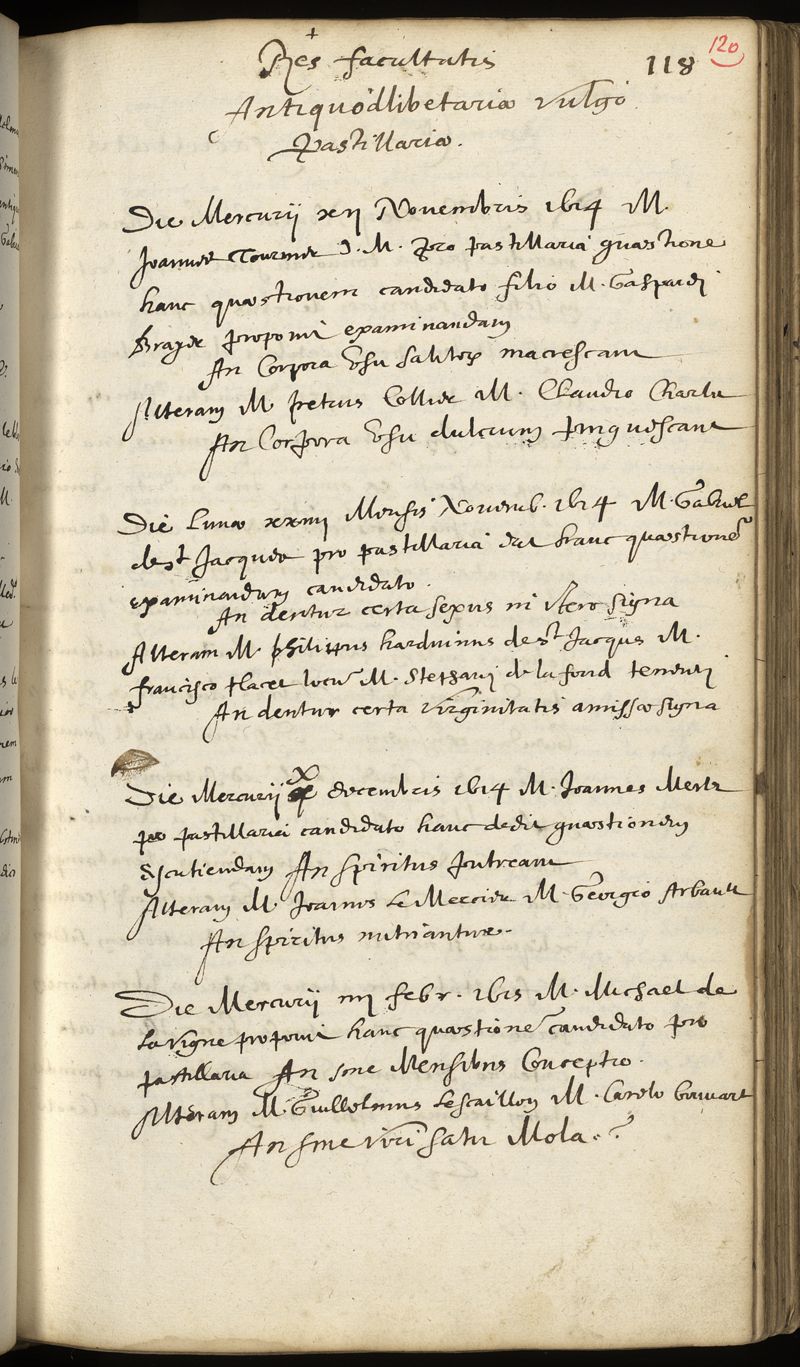 Res facultatis
118
120
Antiquodlibetariæ vulgo
Pastillariæ.
Die Mercurij xij Novembris 1614 M.
Joannes Tournier D. M. pro pastillaria quæstione
hanc quæstionem candidato filio M. Gaspardi
Brayer proponit examinandam
An Corpora Usu salitorum macrescant
Alteram M petrus Collier M. Claudio Charlu
An Corpora Usu dulcium pinguescant
Die Lunæ xxiiij Mensis Novemb. 1614 M. Gabriel
de st Jacques pro pastillaria dat hanc quæstionē
examinandam candidato.
An dentur certa sexus in utero signa
Alteram M. philippus harduinus de st Jacques M.
francisco placet locū M. Stephani de la fond tenenti
An dentur certa virginitatis amissæ signa
Die Mercurij x decembris 1614 M. Joannes Merlz
pro pastillaria candidato hanc dedit quæstionem
discutiendam An spiritus putreant
Alteram M. Joannes Le Mercier M. Georgio Arbault
An spiritus nutriantur.
Die Mercurij iiij febr. 1615 M. Michael de
La vigne proponit hanc quæstionē candidato pro
pastillaria An sine Mensibus Conceptio.
Alteram M. Guillelmus Lescaillon M. Carolo bouvart
An sine viri satu Mola.?